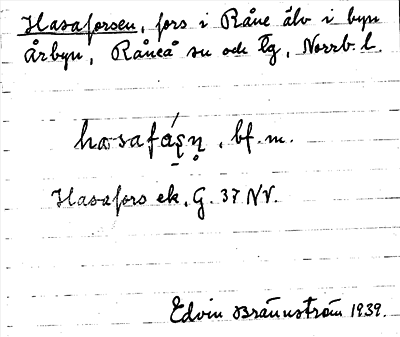 Hasaforsen, fors i Råne älv i byn
Årbyn, Råneå sn och tg, Norrb. l.
hasafáṣṇ̥, bf. m.
Hasafors ek. G. 37 NV.
Edvin Brännström 1939.